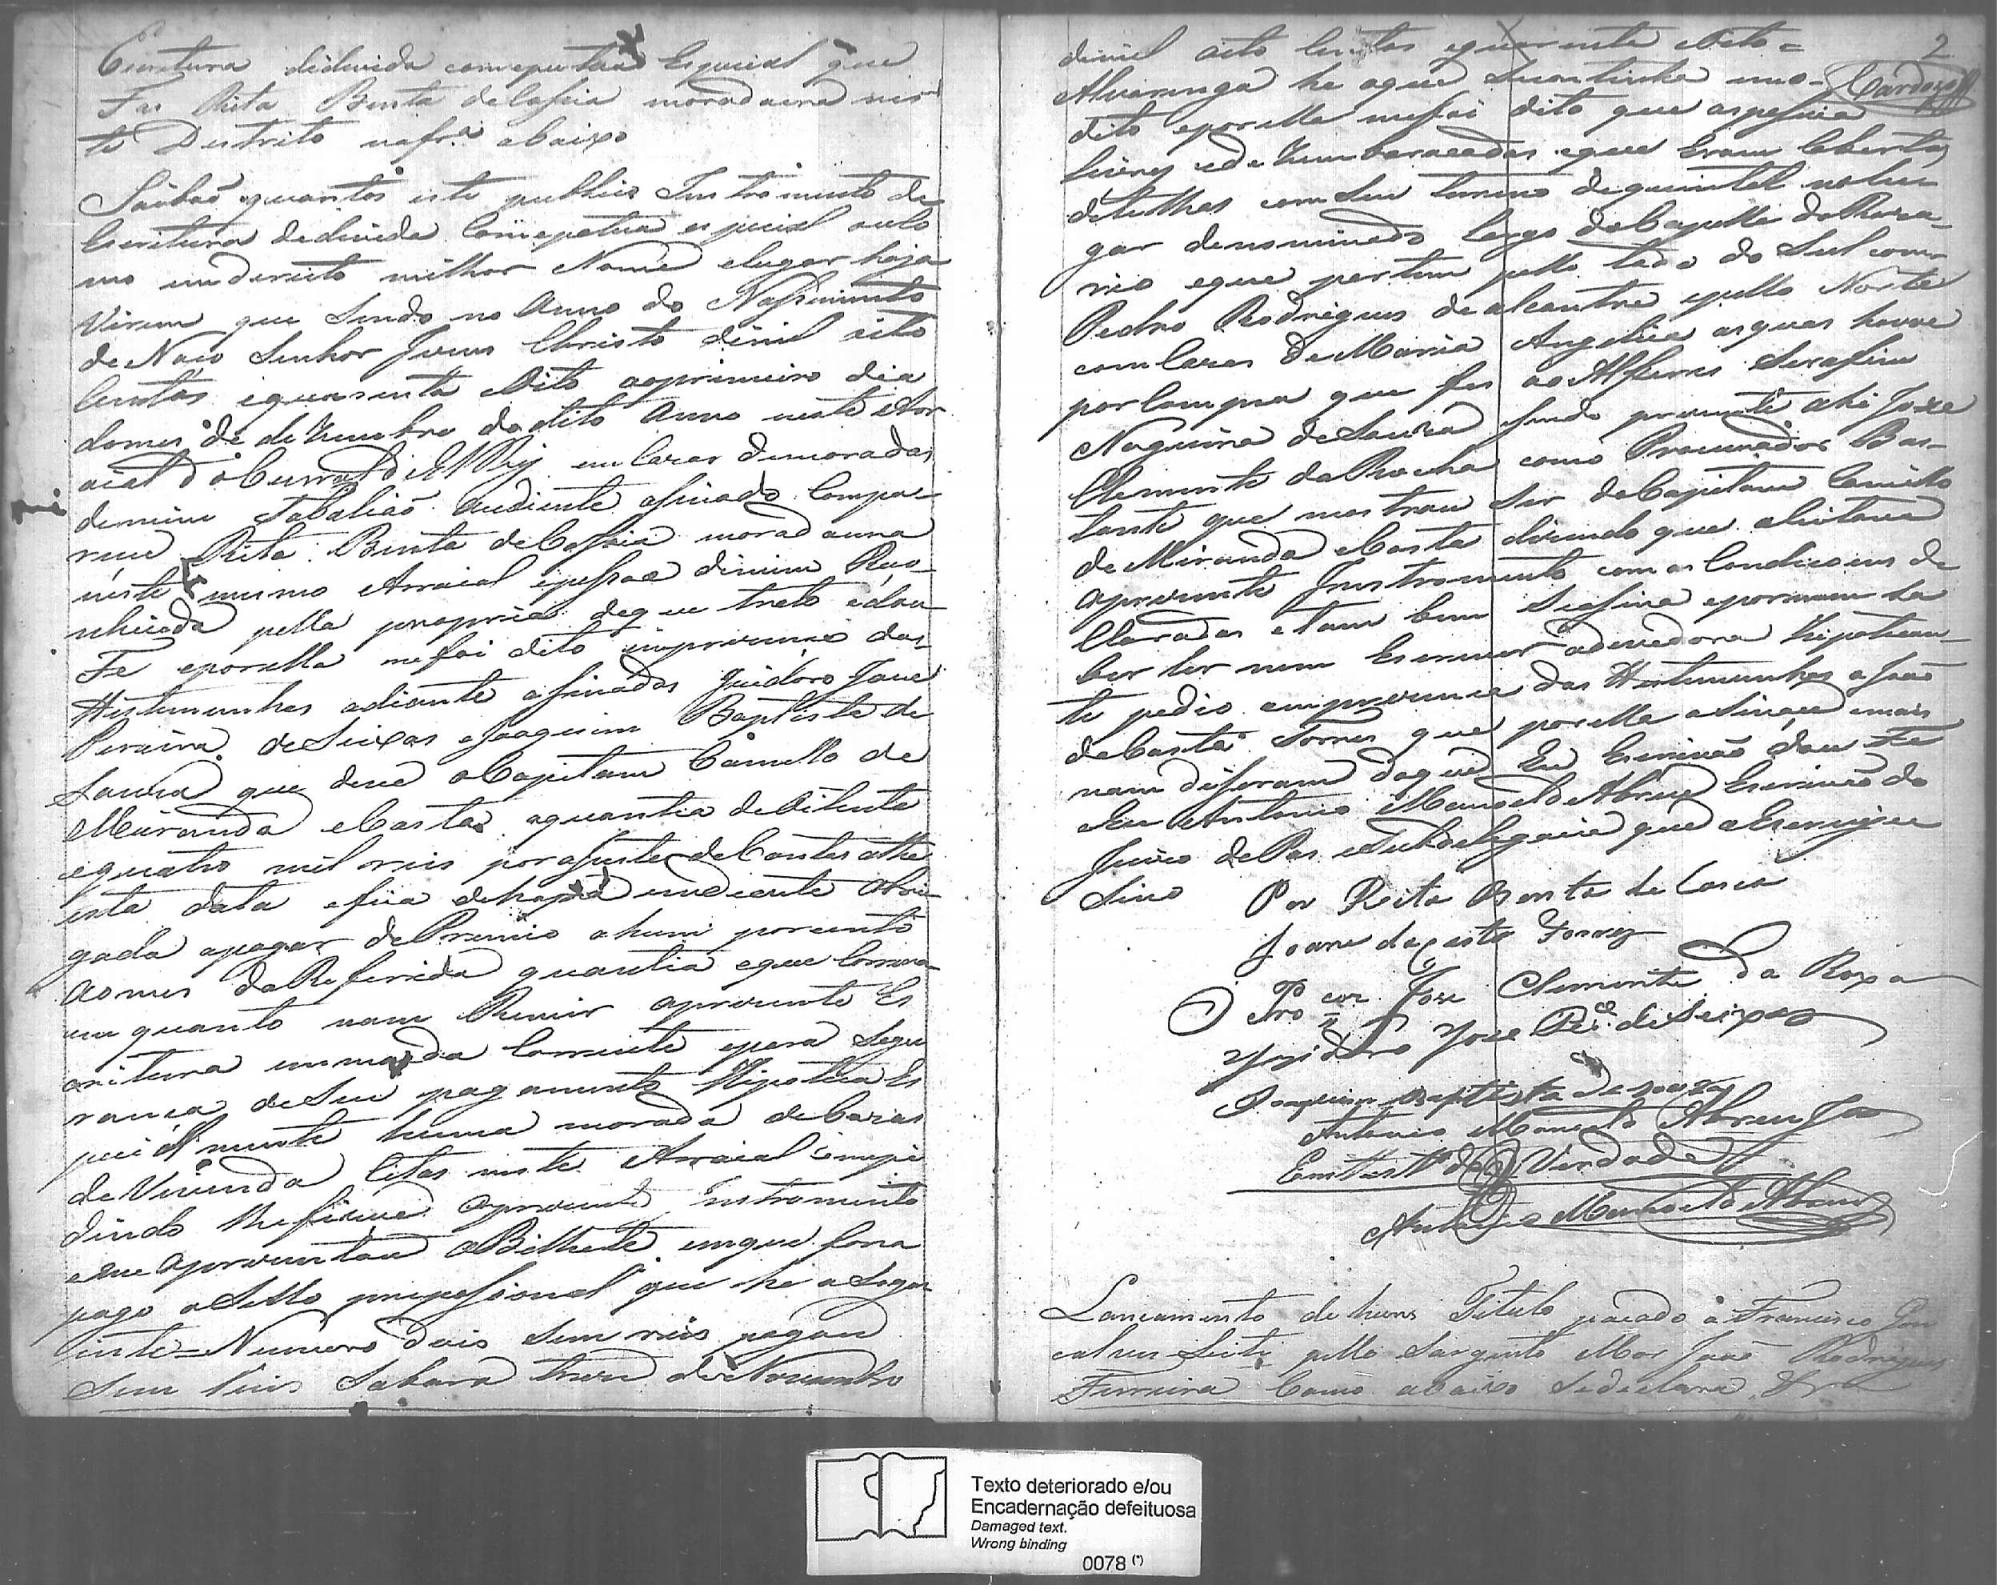 Escritura dedivida comepotica Especial que
Fas Rita Bento deCassia moradoura nes
te Destrito na fr.ª abaixo
Saibaõ quantos este publico Instromento de
Escritura dedivida Comepoteca especial ou Co
mo emdireito milhor Nome elugar haja
Virem que Sendo no Anno do Nassimento
de Noço Senhor Jezus Christo demil oito
Centos equarenta eOito aoprimeiro dia
domes de dezembro do dito Anno neste Ar
raial do Curral dElRey em Cazas demoradas
demim Tabaliaõ audiente asinado Compa-
receo Rita Bento deCassia moradoura
neste mesmo Arraial epessoa demim Reco-
nhecida pella propria deque trato edou
Fe eporella mefoi dito empresença das
testemunhas adiante asinadas Izidoro Joze
Pereira de Seixas eJoaquim Baptista de
Souza que deve aoCapitam Camillo de
Miranda eCosta aquantia deOitenta
equatro mil reis por ajuste deContas athe
esta data efica dehoje emdiente obri-
gada apagar dePremio ahum porcento
Aomes daReferida quantia eque Correra
em quanto nam Remir aprezente Es
critura emmoeda Corrente epera Segu
rança de Seu pagamento Hipoteca Es
pecialmente huma morada de Cazas
deVivenda Citas neste Arraial
dindo
eme aprezentou oBilhete emque fora
pago o Sello proposional que he o Segu
inte = Numero dois Sem reis pagou
Sem reis Sabara treze deNovembro
2
demil oito Centos equarenta eOito =
Alvarenga he oque Secontinha no o- Cardozo
dito eporella mefoi dito que aspessuia
livres edezembaraçadas eque Eram Cobertas
detelhas com Seu terreno dequintal no lu
gar denominado Largo da Capella do Roza-
rio eque partem pello lado do Sul com
Pedro Rodrigues de alcantra epello Norte
com Cazas de Maria Angelica asquaes houve
por Compra que fes ao Alferes Serafim
Nogueira de Souza sendo prezente ahi Joze
Clemente da Rocha como Procurador Bas-
tante que mostrou Ser do Capitam Camillo
de Miranda eCosta dizendo que aceitava
aprezente Instromento com as Condicoens de
Claradas etam bem Seasina epornam Sa
ber ler nem Escrever adevedora Hipotecan-
te pedio empresença das testemunhas a Joaõ
daCosta Torres que porella asinace emais
nam diseram doque Eu Escrivaõ dou Fe
eEu Antonio Manoel de Abreu Escrivaõ do
Juizo de Pas eSubdelegacia que aEscrevy e
Sino Por Rita Bonta de Cacia
Joam da Costa Torres
O Pro cor Joze Clemente da Roxa
Yzidoro Joze Per.ª de Seixas
Joaquim Baptista de souza
Antonio Manoel de Abreu
Em test.º de Verdade
Antonio Manoel de Abreu
Lancamento de hum Titulo pacado á Francisco Gon
calves Leite pello Sargento Mor Joaõ Rodrigues
Ferreira Como abaixo Sedeclara
Texto deteriorado e/ou
Encadernação defeituosa
Damaged text.
Wrong binding
0078 (*)